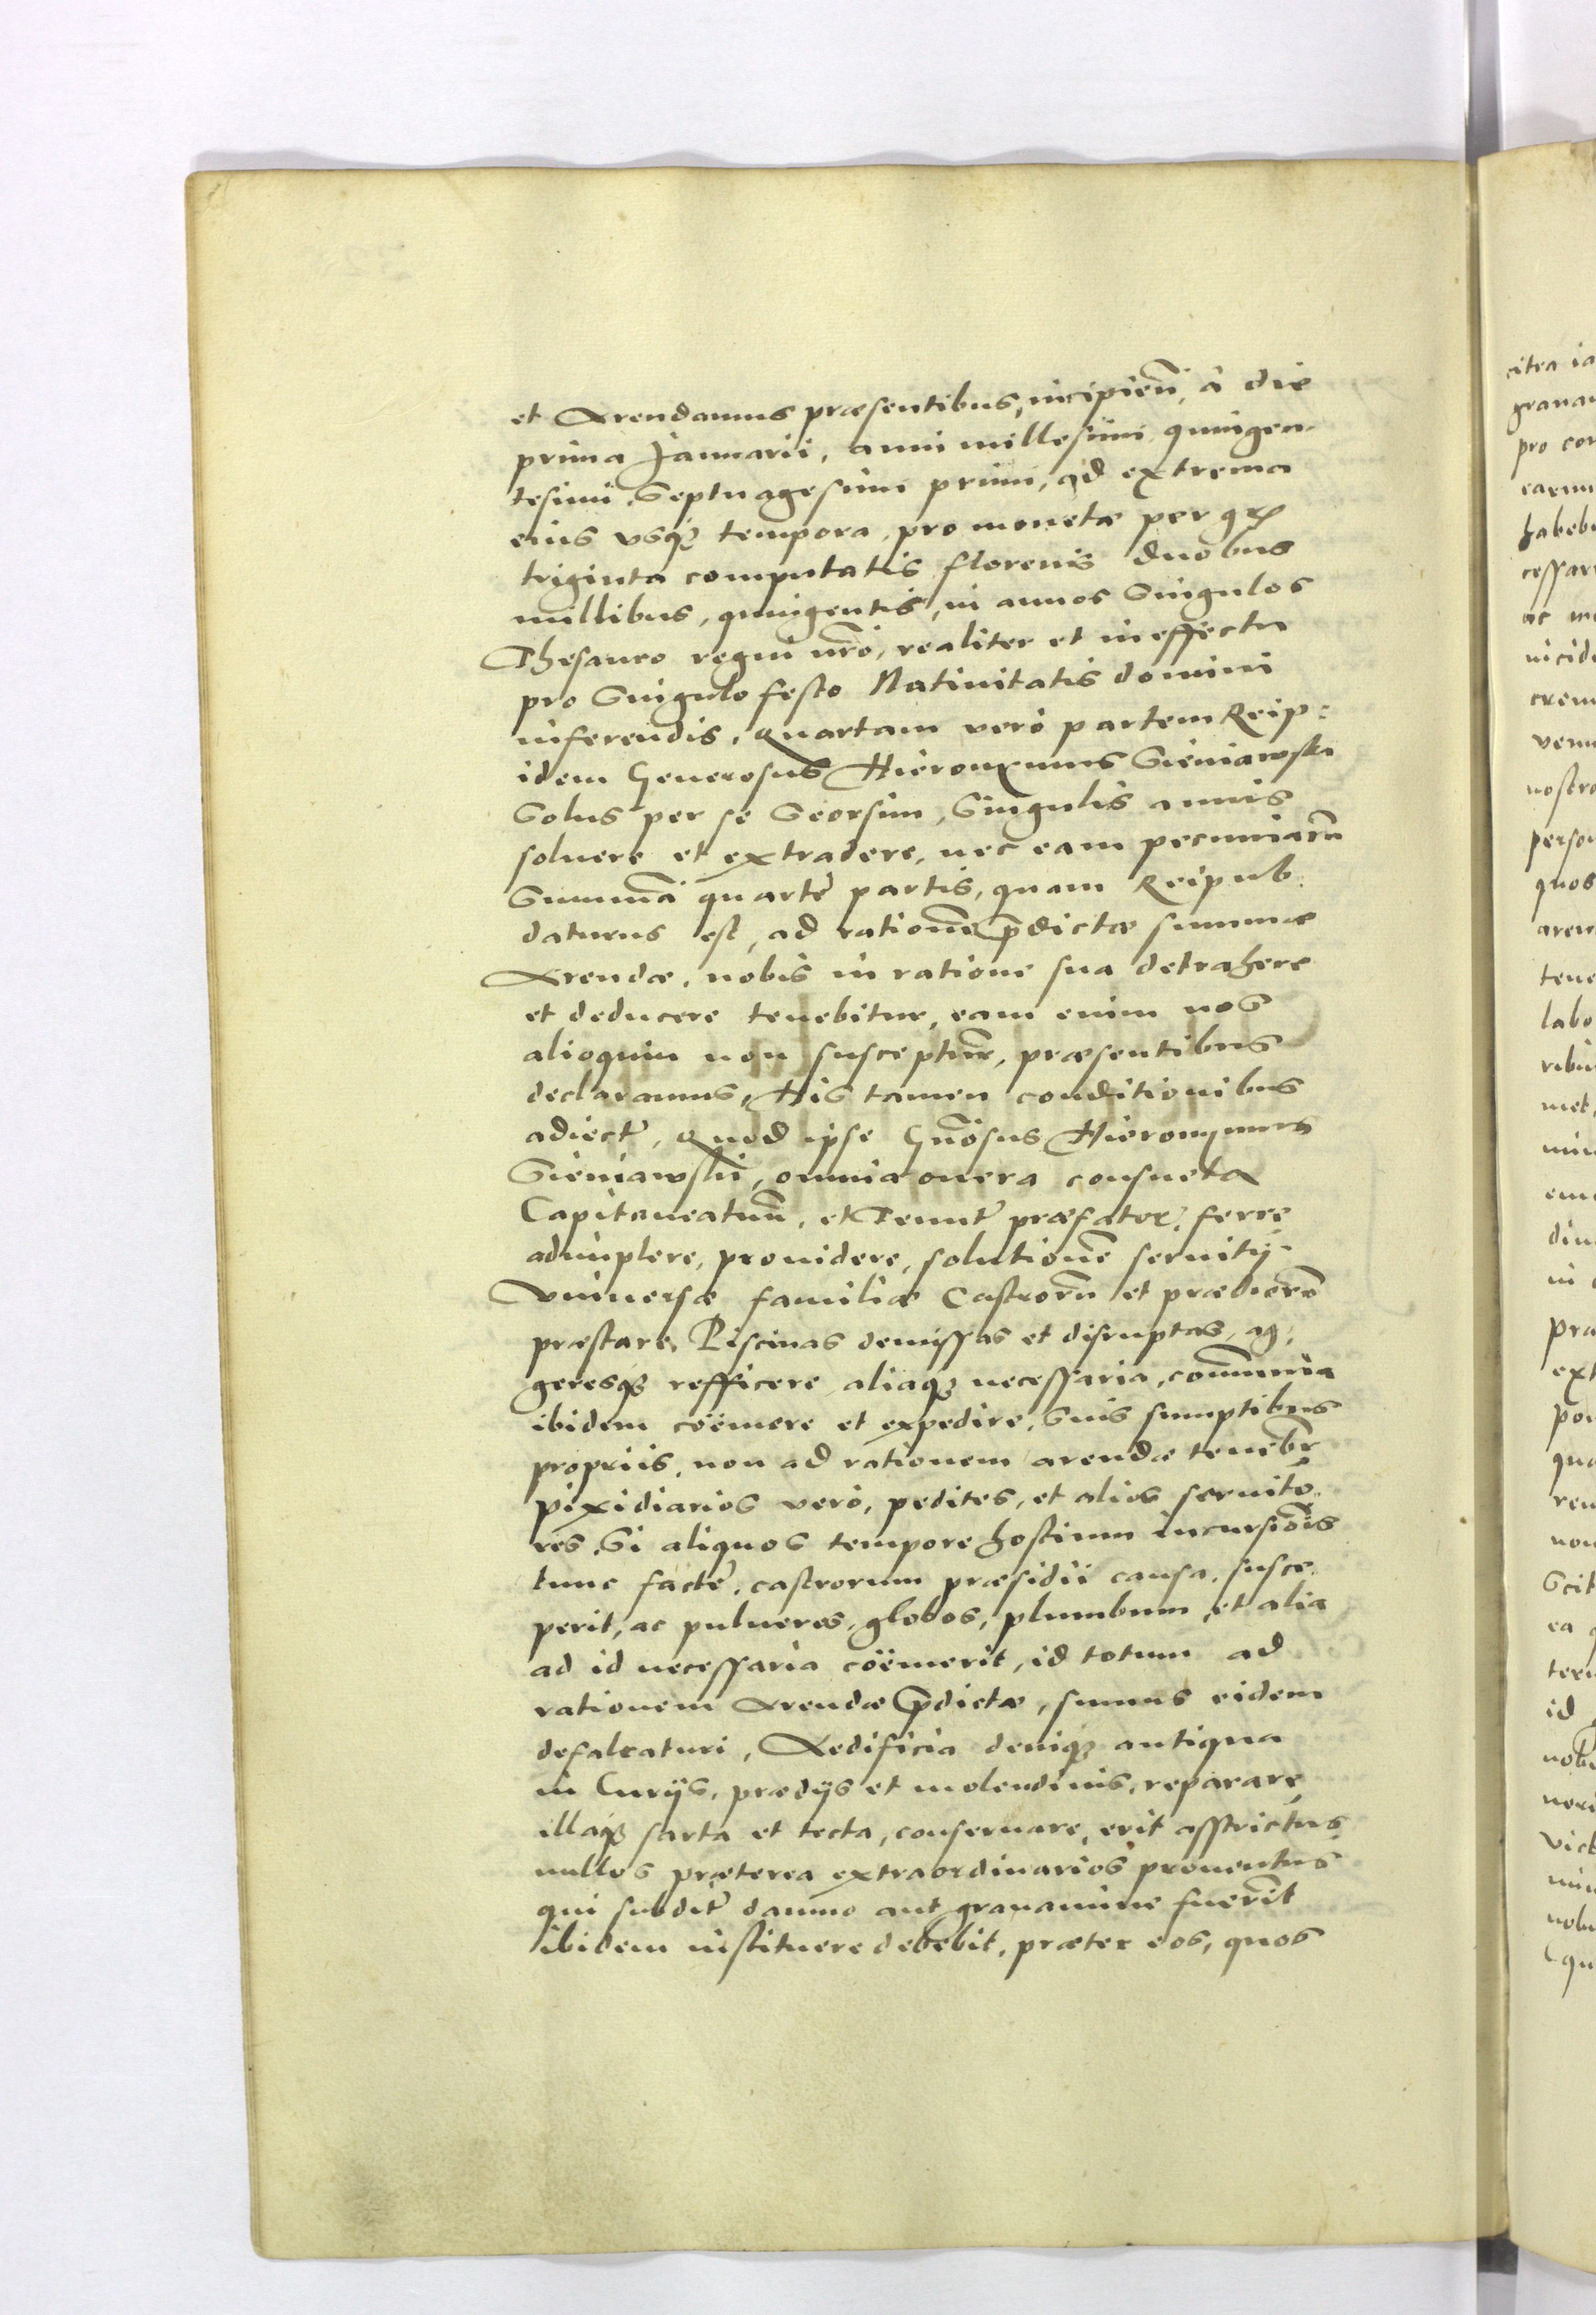 et Arendamus præsentibus, incipien̄, à die
prima Januarii, anni millesimi quingen-
tesimi Septuagesimi primi, ad extrema
eius vsq₃ tempora, pro monetæ per gr
triginta computatis florenis duobus
millibus, quingentis, in annos Singulos
Thesauro regni nr̄o, realiter et in effectu
pro Singulo festo Natiuitatis domini
inferendis, Quartam verò partem Reip:
idem Generosus Hieronymus Sieniawski
Solus per se Seorsim, Singulis annis
soluere et extradere, nec eam pecuniarū
Summā quartę partis, quam Reipub:
daturus est, ad rationē p̄dictæ summæ
Arendæ, nobis in ratione sua detrahere
et deducere tenebitur, eam enim nos
alioquin non suscepturos, præsentibus
declaramus, His tamen conditionibus
adiectis, Quod ipse Gn̄osus Hieronymus
Sieniawski, omnia onera consueta
Capitaneatuū, et Tenutæ præfator, ferre
adimplere, prouidere, solutionē seruitij
Vniuersæ familiæ Castrorū et prædiorū
præstare, Piscinas demissas et disruptas, ag-
geresq₃ refficere aliaq₃ necessaria, com̄unia
ibidem coëmere et expedire, Suis sumptibus
propriis, non ad rationem arendæ teneb̄r
pixidiarios verò, pedites, et alios seruito-
res, Si aliquos tempore hostium incursiōis
tunc factę, castrorum præsidii causa, susce-
perit, ac pulueres, globos, plumbum, et alia
ad id necessaria coëmerit, id totum ad
rationem Arendæ p̄dictæ, sumus eidem
defalcaturi, Aedificia deniq₃ antiqua
in Curijs, prædijs et molendinis, reparare
illaq₃ sarta et tecta, conseruare, erit asstrictus
nullos præterea extraordinarios prouentus
qui subditis damno aut grauamine fuerīt
ibidem instituere debebit, præter eos, quos